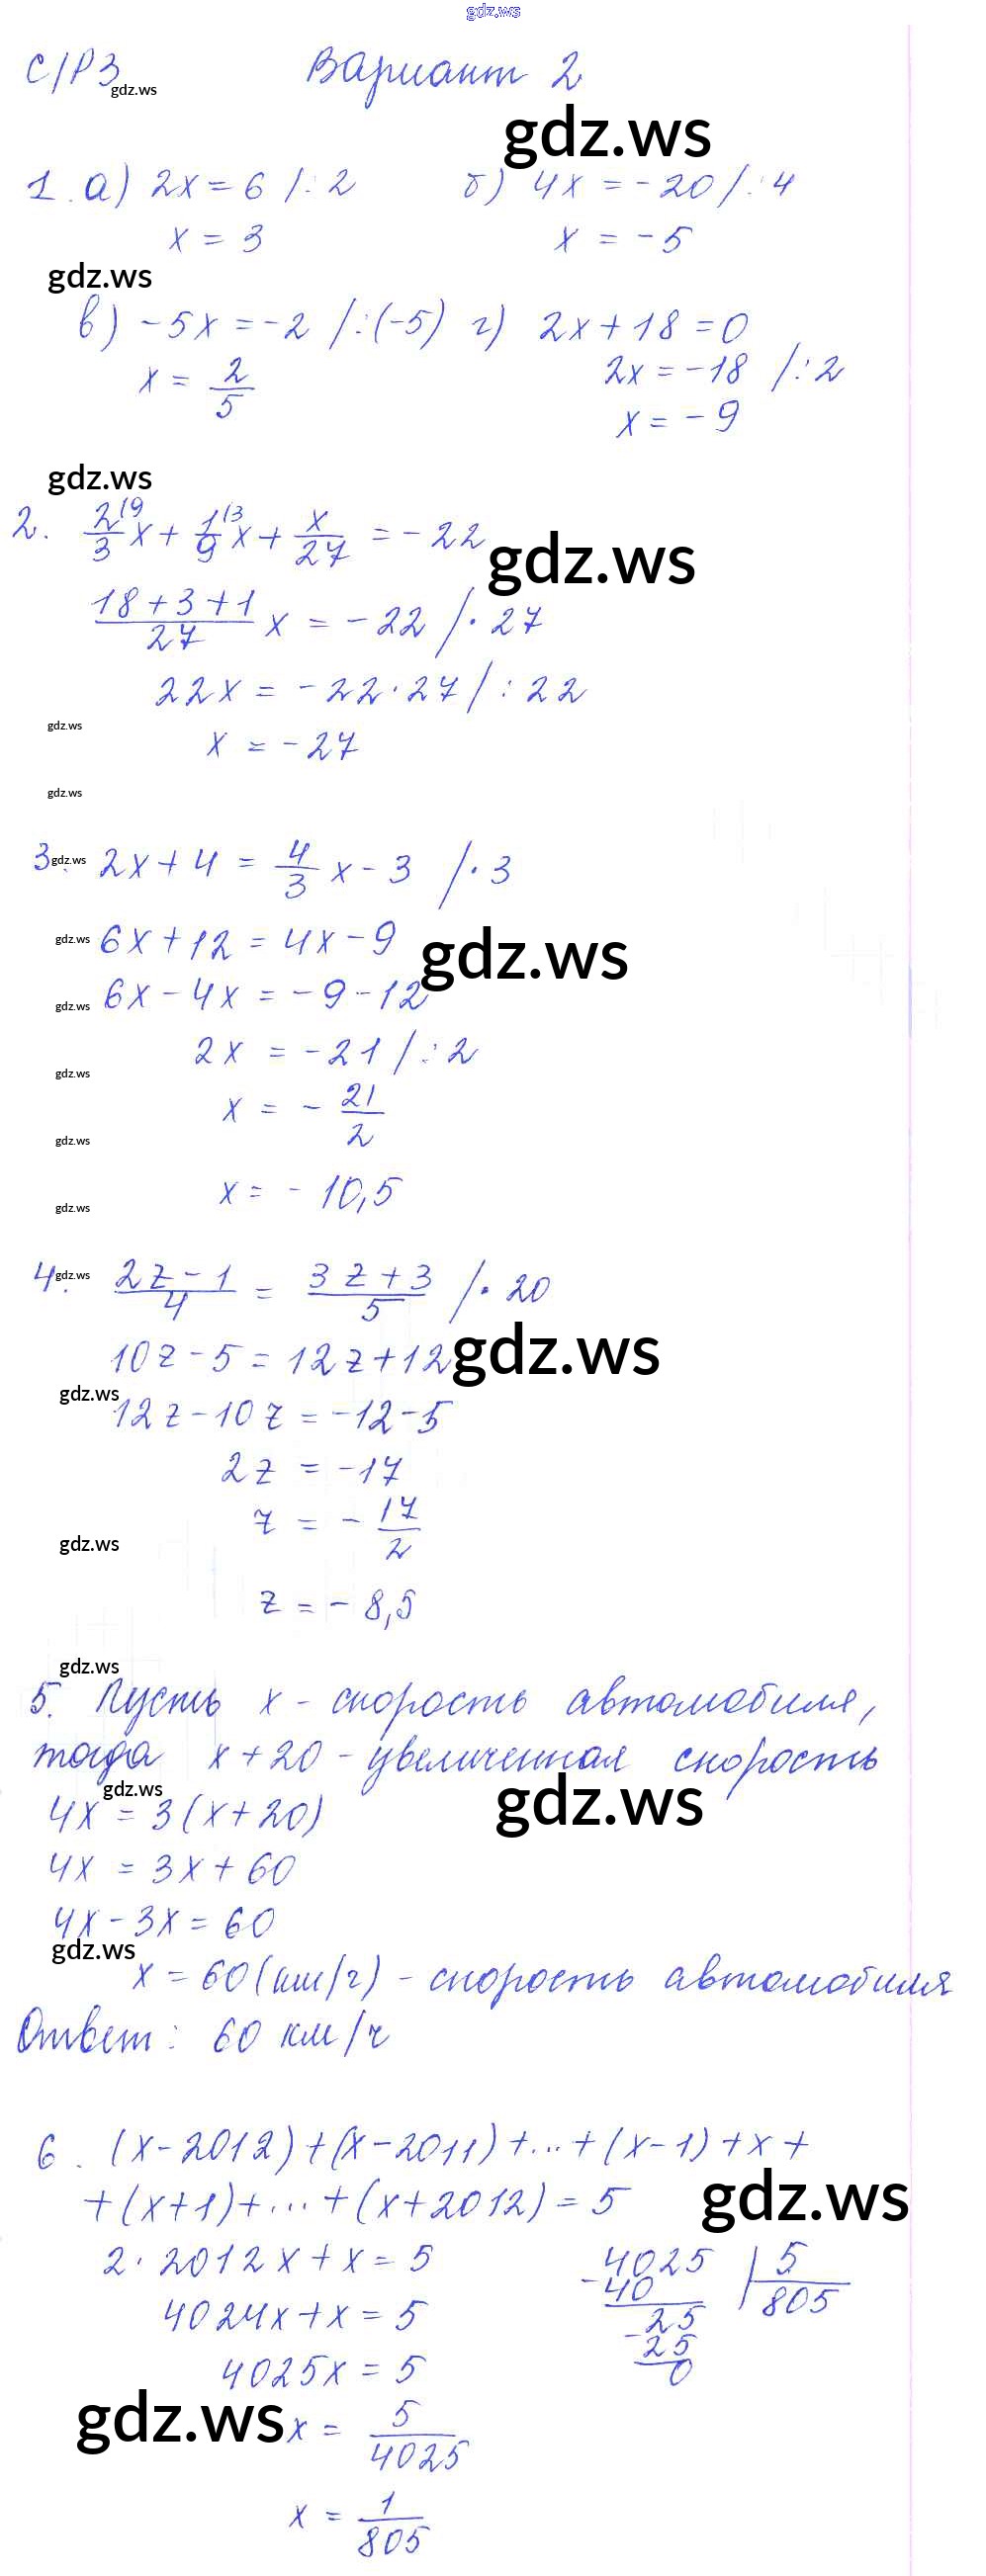 gdz.ws
С/Р 3 Вариант 2
gdz.ws
gdz.ws
1. а) 2x = 6 /: 2 б) 4x = -20 /: 4
x = 3 x = -5
gdz.ws
в) -5x = -2 /:(-5) г) 2x + 18 = 0
x = 2/5 2x = -18 /: 2
x = -9
gdz.ws
2. 2/3 \9 x + 1/9 \3 x + x/27 = -22
gdz.ws
(18 + 3 + 1)/27 x = -22 /· 27
22x = -22 · 27 /: 22
gdz.ws
x = -27
gdz.ws
3. gdz.ws 2x + 4 = 4/3 x - 3 /· 3
gdz.ws 6x + 12 = 4x - 9 gdz.ws
gdz.ws 6x - 4x = -9 - 12
2x = -21 /: 2
gdz.ws
x = - 21/2
gdz.ws
x = - 10,5
gdz.ws
4. gdz.ws (2z - 1)/4 = (3z + 3)/5 /· 20
10z - 5 = 12z + 12 gdz.ws
gdz.ws
12z - 10z = -12 - 5
2z = -17
z = - 17/2
gdz.ws
z = - 8,5
gdz.ws
5. Пусть x - скорость автомобиля,
тогда x + 20 - увеличенная скорость
gdz.ws
gdz.ws
4x = 3(x + 20)
4x = 3x + 60
4x - 3x = 60
gdz.ws
x = 60 (км/ч) - скорость автомобиля
Ответ: 60 км/ч
6. (x - 2012) + (x - 2011) + ... + (x - 1) + x +
+ (x + 1) + ... + (x + 2012) = 5 gdz.ws
2 · 2012x + x = 5 4025 | 5
4024x + x = 5 - 40 805
25
- 25
4025x = 5 0
gdz.ws
x = 5/4025
x = 1/805